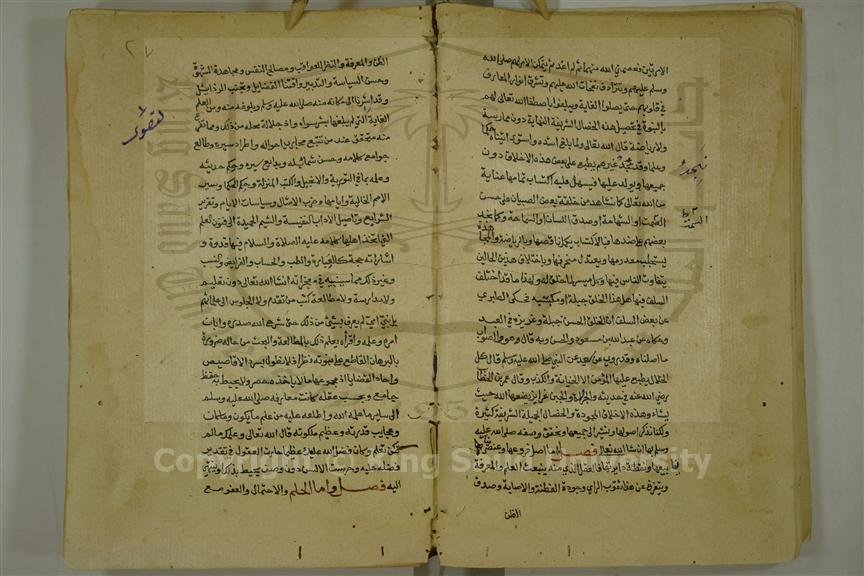 الامر بين فعصمني الله منهما ثم لم اعد ثم يتمكن الامر لهم صلى الله
وسلم عليهم وتترادف نفحات الله عليهم وتشرق انوار المعارف
في قلوبهم حتى يصلوا الغاية ويبلغوا باصطفاء الله تعالى لهم
بالنبوة في تحصيل هذه الخصال الشريفة النهاية دون ممارسة
ولا رياضة قال الله تعالى ولما بلغ اشده واستوى اتيناه حكما
وعلما وقد نجد غيرهم يطبع على بعض هذه الاخلاق دون
جميعها ويولد عليها فيسهل عليه اكتساب تمامها عناية
من الله تعالى كما نشاهد من خلقة بعض الصبيان على حسن
السمت او الشهامة او صدق اللسان او السماحة وكما نجد
بعضهم على ضدها فبالاكتساب يكمل ناقصها وبالرياضة والمجاهدة
يستجلب معدومها ويعتدل منحرفها وباختلاف هذين الحالين
يتفاوت الناس فيها وكل ميسر لما خلق له ولهذا ما قد اختلف
السلف فيها هل هذا الخلق جبلة او مكتسبة فحكى الطبري
عن بعض السلف ان الخلق الحسن جبلة وغريزة في العبد
وحكاه عن عبد الله بن مسعود والحسن وبه قال وهو والصواب
ما اصلناه وقد روى سعد عن النبي صلى الله عليه وسلم قال كل
الخلال يطبع عليها المؤمن الا الخيانة والكذب وقال عمر بن الخطاب
رضي الله عنه في حديثه والجراءة والجبن غرائز يضعها الله حيث
يشاء وهذه الاخلاق المحمودة والخصال الجميلة الشريفة كثيرة
ولكننا نذكر اصولها ونشير الى جميعها ونحقق وصفه صلى الله عليه
وسلم بها ان شاء الله تعالى فصل اما اصل فروعها وعنصر
ينابيعها ونقطة دائرتها فالعقل الذي منه ينبعث العلم والمعرفة
ويتفرع عن هذا ثقوب الراي وجودة الفطنة والاصابة وصدق
الظن
نجد
السمت
٢٧
الظن والمعرفة والنظر للعواقب ومصالح النفس ومجاهدة الشهوة
وحسن السياسة والتدبير واقتناء الفضايل وتجنب الرذايل
وقد اشرنا الى مكانه منه صلى الله عليه وسلم وبلوغه منه ومن العلم
الغاية التي لم يبلغها بشر سواه واذ جلالة محله من ذلك ومما تفرع
منه متحقق عند من تتبع مجاري احواله واطراد سيره وطالع
جوامع كلامه وحسن شمائله وبدايع سيره وحكم حديثه
وعلمه بما في التورية والانجيل والكتب المنزلة وحكم الحكما وسير
الامم الخالية وايامها وضرب الامثال وسياسات الانام وتقرير
الشرايع وتاصيل الاداب النفيسة والشيم الحميدة الى فنون العلم
التي اتخذ اهلها كلامه عليه الصلاة والسلام فيها قدوة و
اشاراته حجة كالعبارة والطب والحساب والفرايض والنسب
وغير ذلك مما سنبينه في معجزاته ان شا الله تعالى دون تعليم
ولا مدارسة ولا مطالعة كتب من تقدم ولا الجلوس الى علمائهم
بل نبي امي لم يعرف بشيئ من ذلك حتى شرح الله صدره وابان
امره وعلمه واقرأه يعلم ذلك بالمطالعة والبحث من حاله ضرورة
بالبرهان القاطع على نبوته نظرا فلا نطول بسرد الاقاصيص
واحاد القضايا اذ مجموعها ما لا ياخذه حصر ولا يحيط به حفظ
جامع وبحسب عقله كانت معارفه صلى الله عليه وسلم
الى ساير ما علمه الله واطلعه عليه من علم ما يكون وما كان
وعجايب قدرته وعظيم ملكوته قال الله تعالى وعلمك ما لم
تكن تعلم وكان فضل الله عليك عظيما حارت العقول في تقدير
فضله عليه وخرست الالسن دون وصف يحيط بذلك او ينتهي
اليه فصل واما الحلم والاحتمال والعفو مع